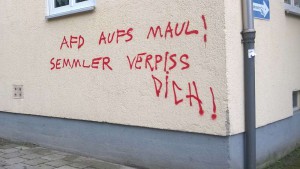 AFD AUFS MAUL!
SEMMLER VERPISS
DICH!